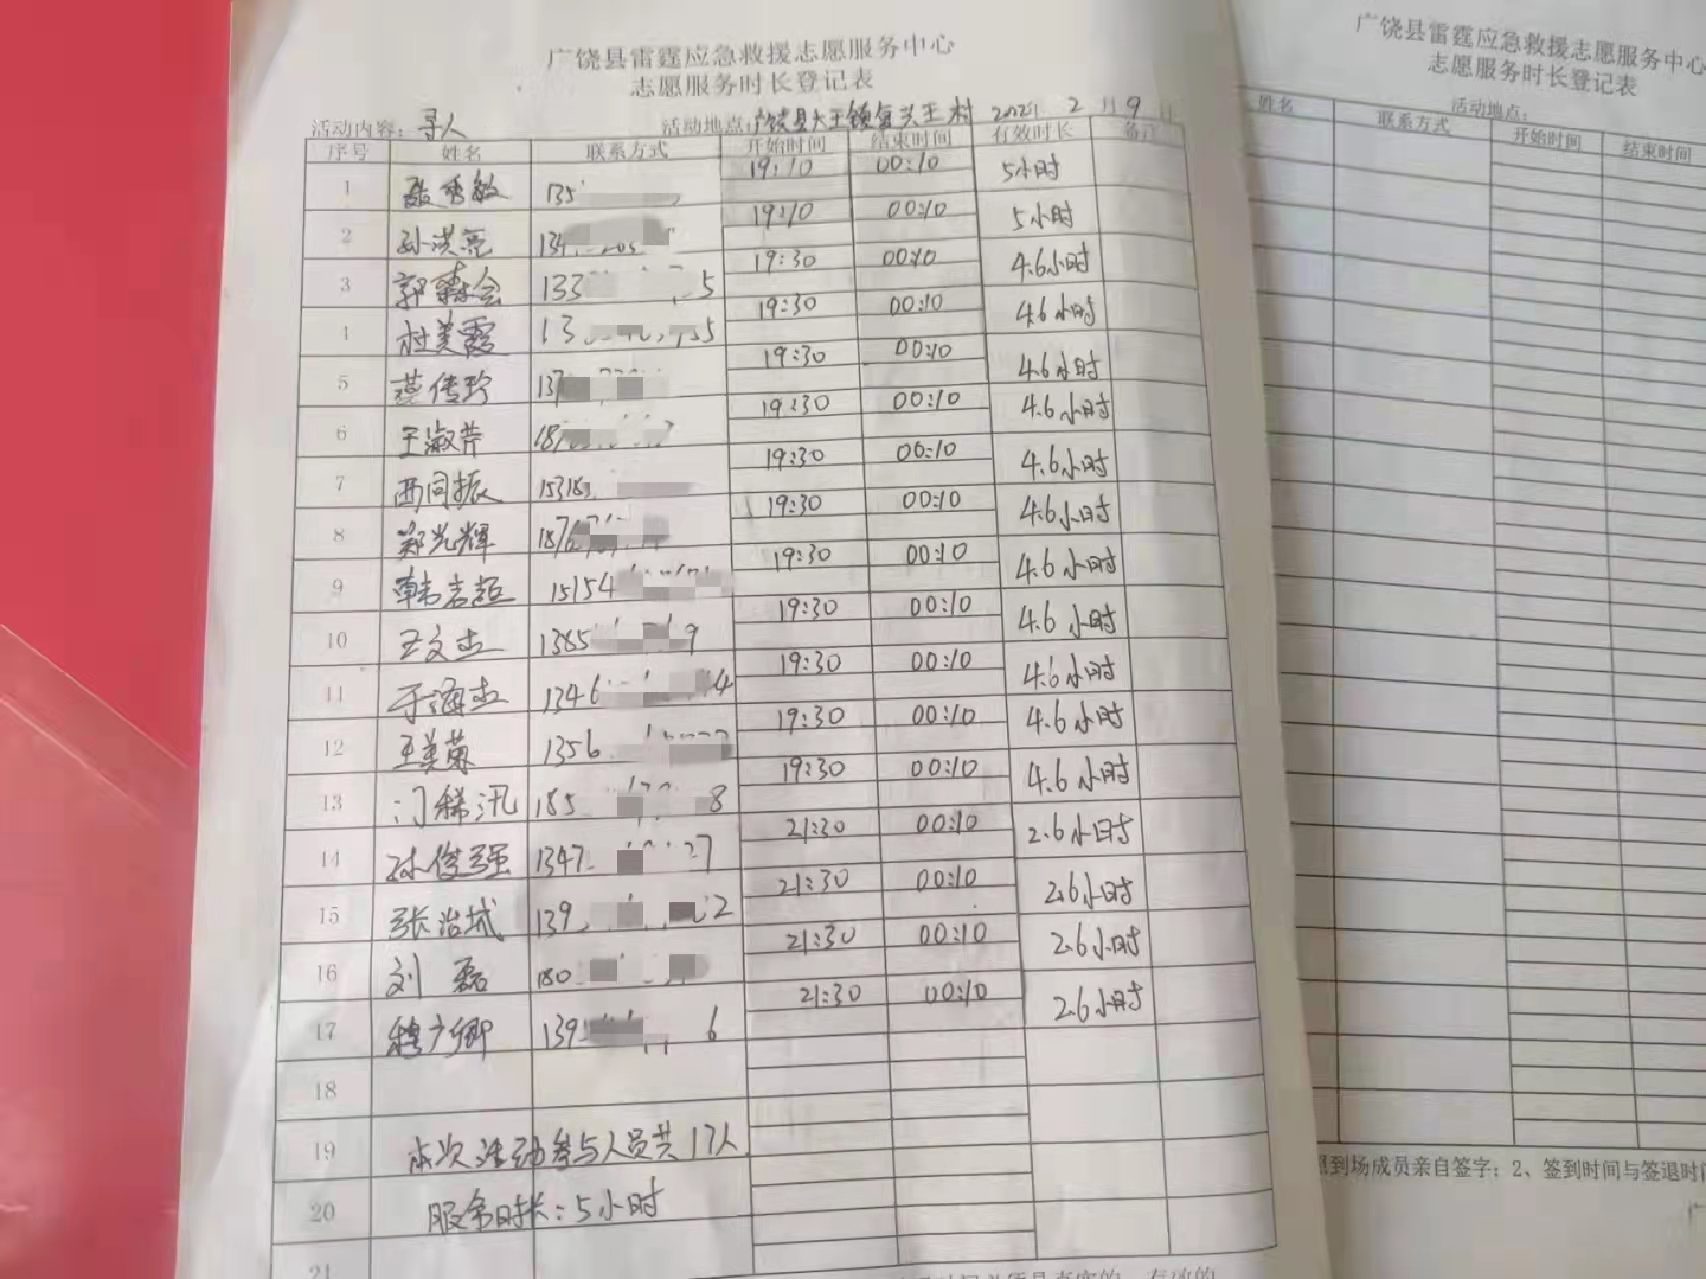 广饶县雷霆应急救援志愿服务中心
志愿服务时长登记表
活动内容: 寻人 活动地点: 广饶县大王镇复兴王村 2021 2月9日
序号 姓名 联系方式 开始时间 结束时间 有效时长 备注
1 张秀敏 135 19:10 00:10 5小时
2 孙洪亮 134 19:10 00:10 5小时
3 郭森会 133 5 19:30 00:10 4.6小时
4 杜美霞 13 55 19:30 00:10 4.6小时
5 燕传玲 137 19:30 00:10 4.6小时
6 王淑芹 187 19:30 00:10 4.6小时
7 西同振 15318 19:30 00:10 4.6小时
8 郑光辉 1876 19:30 00:10 4.6小时
9 韩志超 15154 19:30 00:10 4.6小时
10 王文杰 1385 9 19:30 00:10 4.6小时
11 于海杰 1346 4 19:30 00:10 4.6小时
12 王美菊 1356 19:30 00:10 4.6小时
13 门稀汛 185 8 19:30 00:10 4.6小时
14 孙俊强 1347 27 21:30 00:10 2.6小时
15 张治城 139 2 21:30 00:10 2.6小时
16 刘磊 180 21:30 00:10 2.6小时
17 穆广卿 139 6 21:30 00:10 2.6小时
18
19 本次活动参与人员共17人
20 服务时长: 5小时
21
广饶县雷霆应急救援志愿服务中心
志愿服务时长登记表
活动地点:
姓名 联系方式 开始时间 结束时间
到场成员亲自签字; 2、签到时间与签退时间